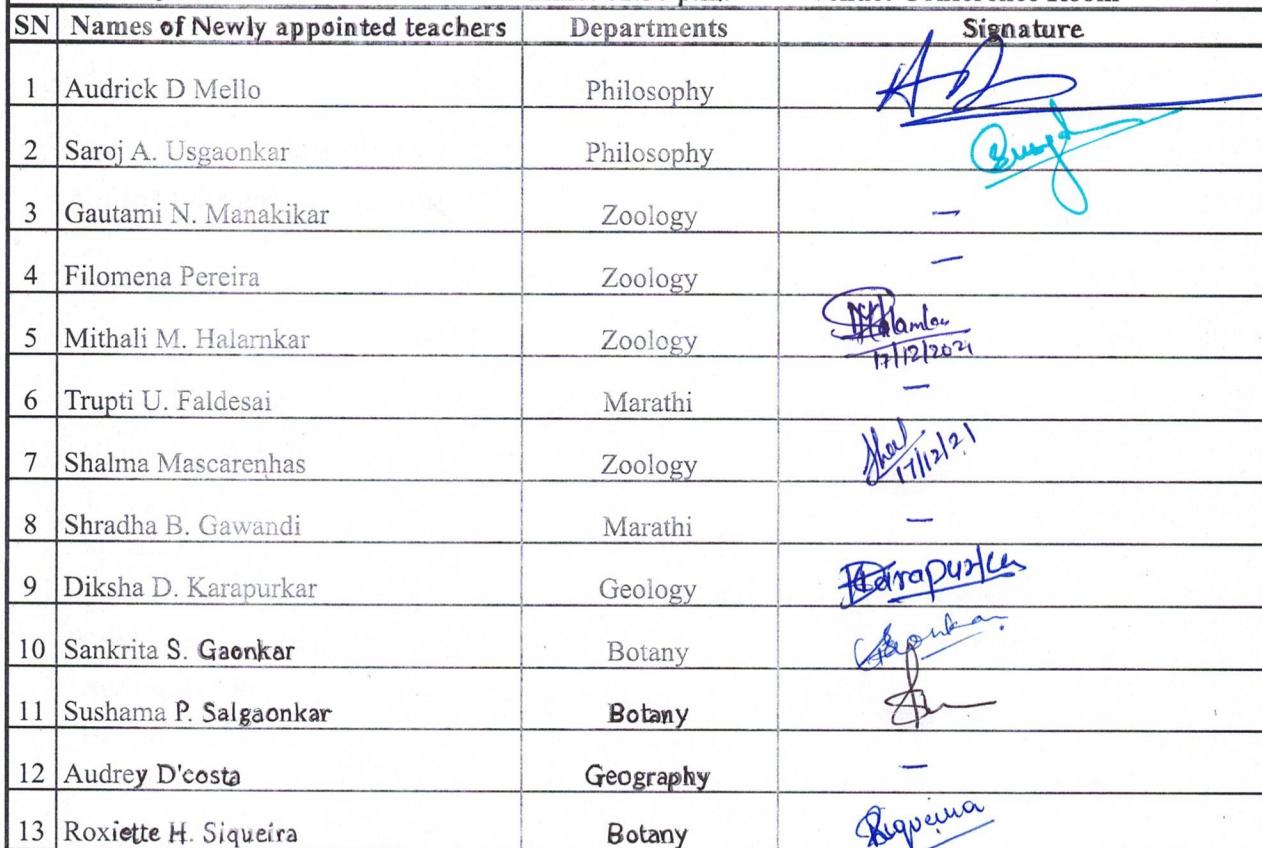 Conference Room
SN Names of Newly appointed teachers Departments Signature
1 Audrick D Mello Philosophy
2 Saroj A. Usgaonkar Philosophy
3 Gautami N. Manakikar Zoology —
4 Filomena Pereira Zoology —
5 Mithali M. Halarnkar Zoology
17/12/2021
6 Trupti U. Faldesai Marathi —
7 Shalma Mascarenhas Zoology
17/12/21
8 Shradha B. Gawandi Marathi —
9 Diksha D. Karapurkar Geology Karapurkar
10 Sankrita S. Gaonkar Botany
11 Sushama P. Salgaonkar Botany
12 Audrey D'costa Geography —
13 Roxiette H. Siqueira Botany Siqueira